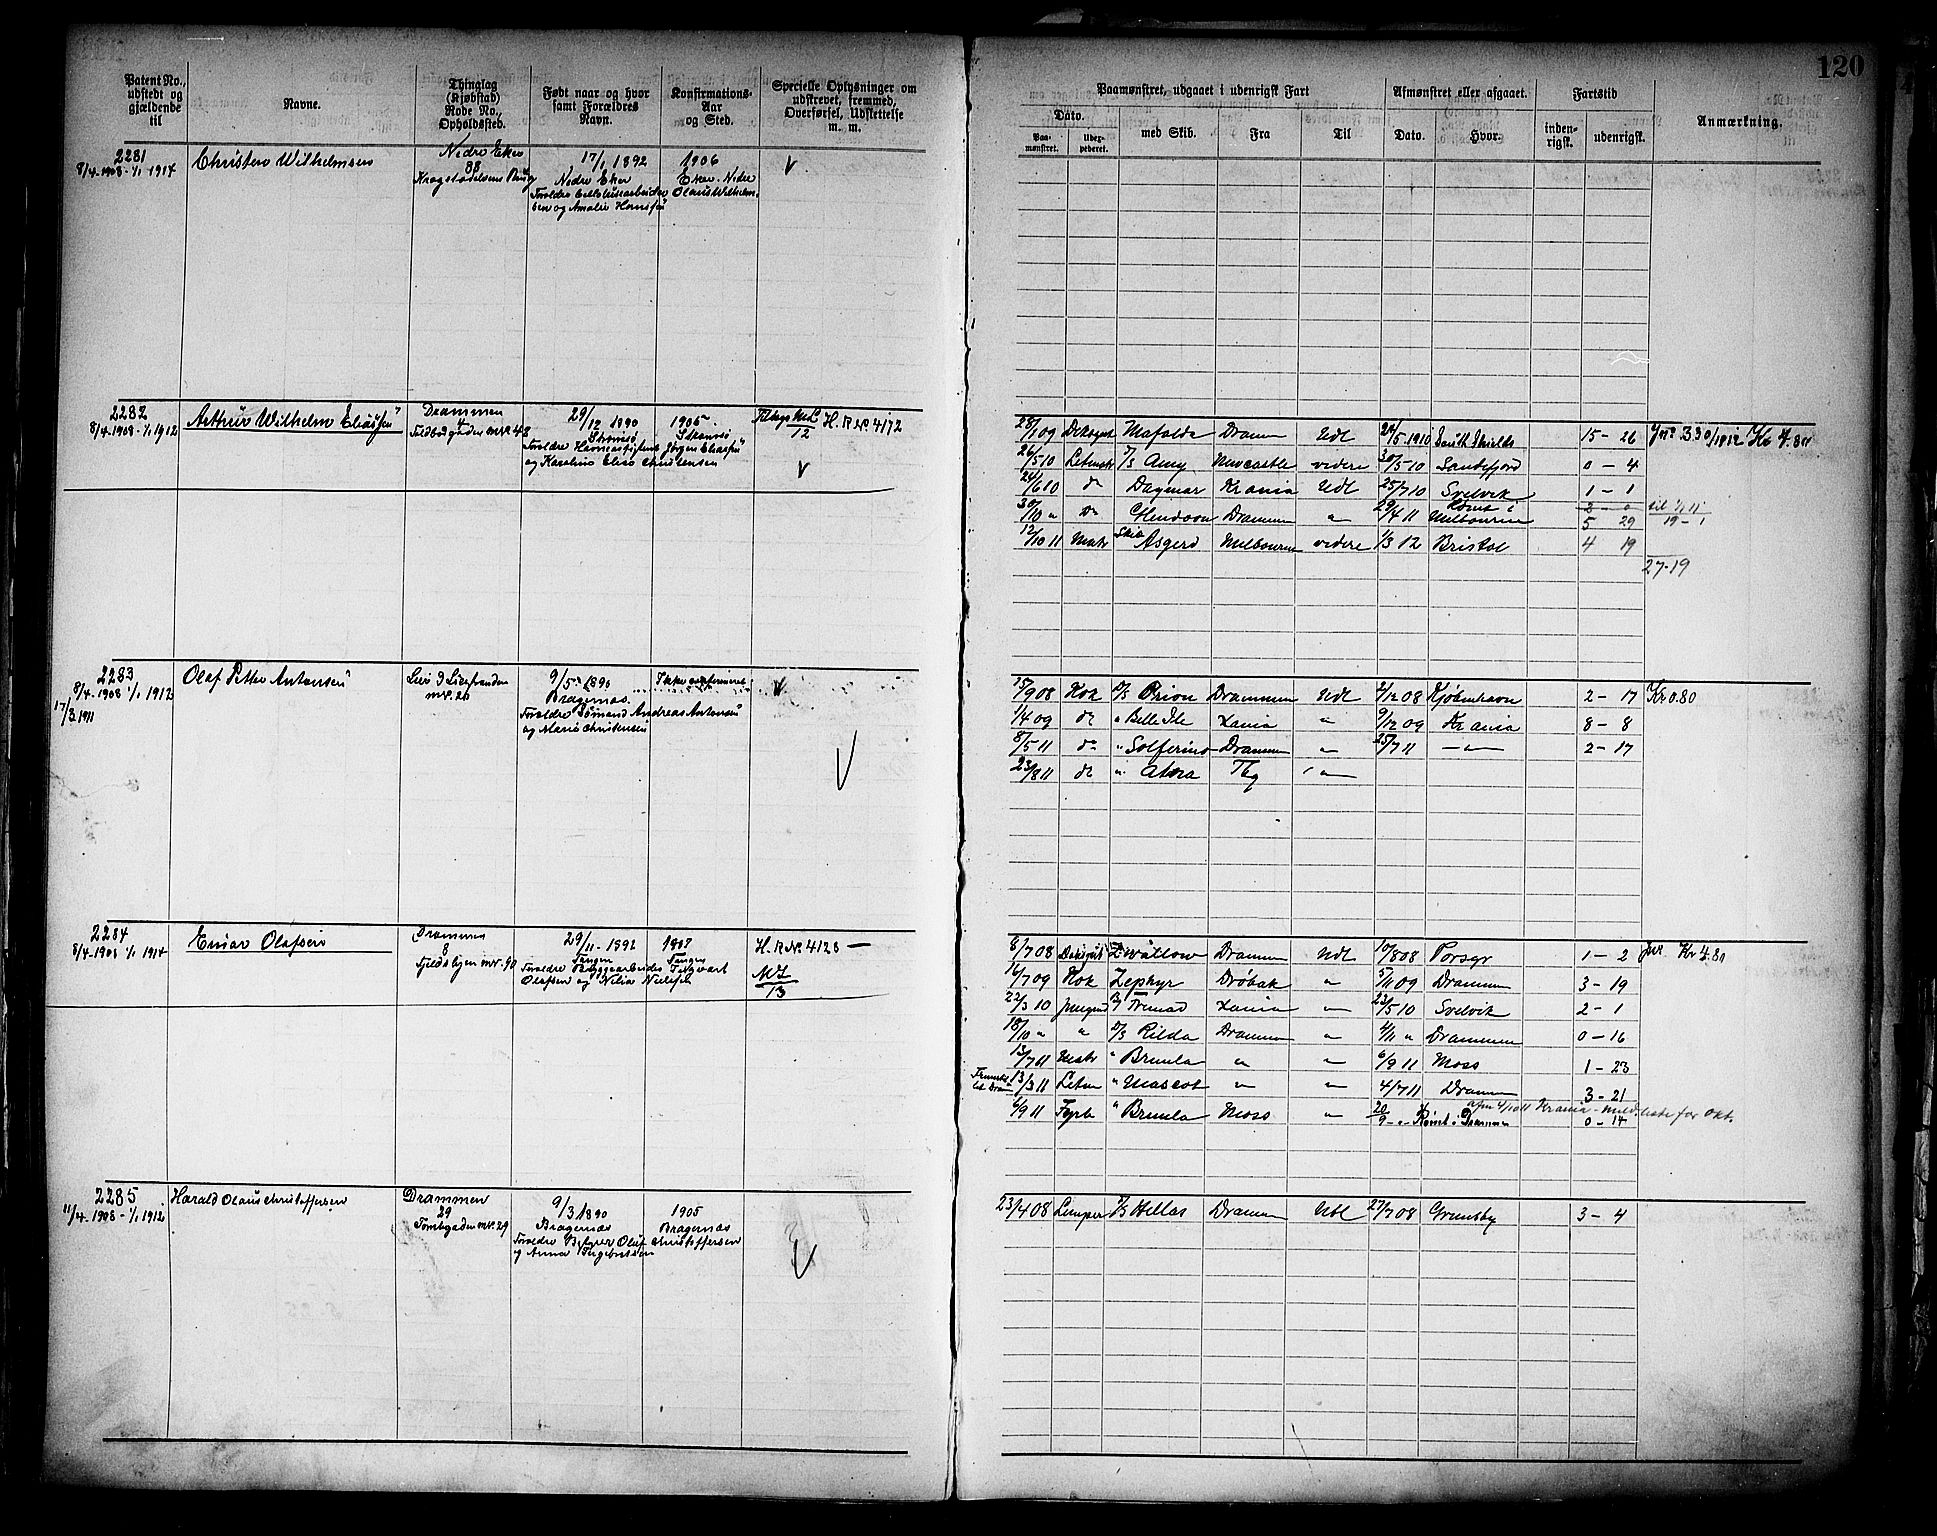 120
Patent No., udstedt og gjældende til
Navne.
Thinglag (Kjøbstad) Rode No., Opholdssted.
Født naar og hvor samt Forældres Navn.
Konfirmations-Aar og Sted.
Specielle Oplysninger om udskrevet, fremmed, Overførsel, Udslettelse m. m.
Paamønstret, udgaaet i udenrigsk Fart
Dato.
Paa-mønstret.
med Skib.
Fra
Til
Afmønstret eller afgaaet.
Dato.
Hvor.
Fartstid
inden-rigsk.
udenrigsk.
Anmærkning.
2281
8/4-1908-1/1 1914
Christen Wilhelmsen
Nedre Eker
17/1 1892
Nedre Eker
1906
Eker. Nedre
Olaus Wilhelm-
sen og Amalie Hansen
V
2282
8/4-1908-1/1 1912
Arthur Wilhelm Eliassen
Drammen
4
29/12 1890
Strømsø
1905
Strømsø
Forældre Havnearbeider Jørgen Eliassen
og Karoline Elise Christensen
12
H. R No 4172
V
28/1 09 Deksgut Mafalda Dramm Udl 24/5-1910 South Shields 15-26
26/5 10 Letmatr D/S Amy Newcastle videre 30/5 10 Sandefjord 0-4
24/6 10 do Dagmar Krania Udl 25/7 10 Svelvik 1-1
30/10 " Do Drammen " 29/4 11 Melbourne 5 29
19-1
12/10 11 Matr Skib Asgerd Melbourne videre 1/3 12 Bristol 4 19
27-19
2283
8/4-1908 1/1 1912
17/3 1911
Olaf Petter Antonsen
Lier
9/5 1890
Bragernes
Ikke confirmeret
Forældre Sømand Andreas Antonsen
og Marie Christensen
V
15/9 08 Kok D/S Orion Drammen Udl 2/12 08 Kjøbenhavn 2-17 Kr 0.80
1/4 09 do " Belle Ile Xania " 9/12 09 Krania 8-8
8/5 11 do " Solferino Dramm " 25/7 11 — " — 2-17
23/8 11 do " Atna Tbg "
2284
8/4-1908 1/1 1914
Einar Olafsen
Drammen
8
Fjeldsbyen nr. 90
29/11-1892
Tangen
1907
Tangen
Forældre Bryggearbeider
Olafsen og Nilia Nielsen
H. R No. 4128 —
13
8/7 08 Swallow Dramm Udl 10/8 08 Porsgr 1-2 Kr 4.80
16/7 09 Kok Zephyr Drøbak " 5/11 09 Drammen 3-19
22/3 10 Jungmd Xania " 23/5 10 Svelvik 2-1
18/10 " " D/S Rilda Dramm " 4/11 " Drammen 0-16
13/7 11 Matr " Brumla " " 6/9 11 Moss 1-23
13/3 11 Letm " Mascot " " 4/7 11 Dramm 3-21
afm 4/10 11 Krania
6/9 11 Fyrb " Brumla Moss " 20/9 - " - Drammen 0-14
2285
11/4-1908-1/1 1912
Harald Olaus Christoffersen
Drammen
29
Tomtegaden nr. 29
9/3 1890
Bragernæs
1905
Bragernæs
Forældre Olaf Christoffersen
og Anna
V
23/4 08 Lemper D/S Hellas Dramm Udl 27/7 08 Grimsby 3-4